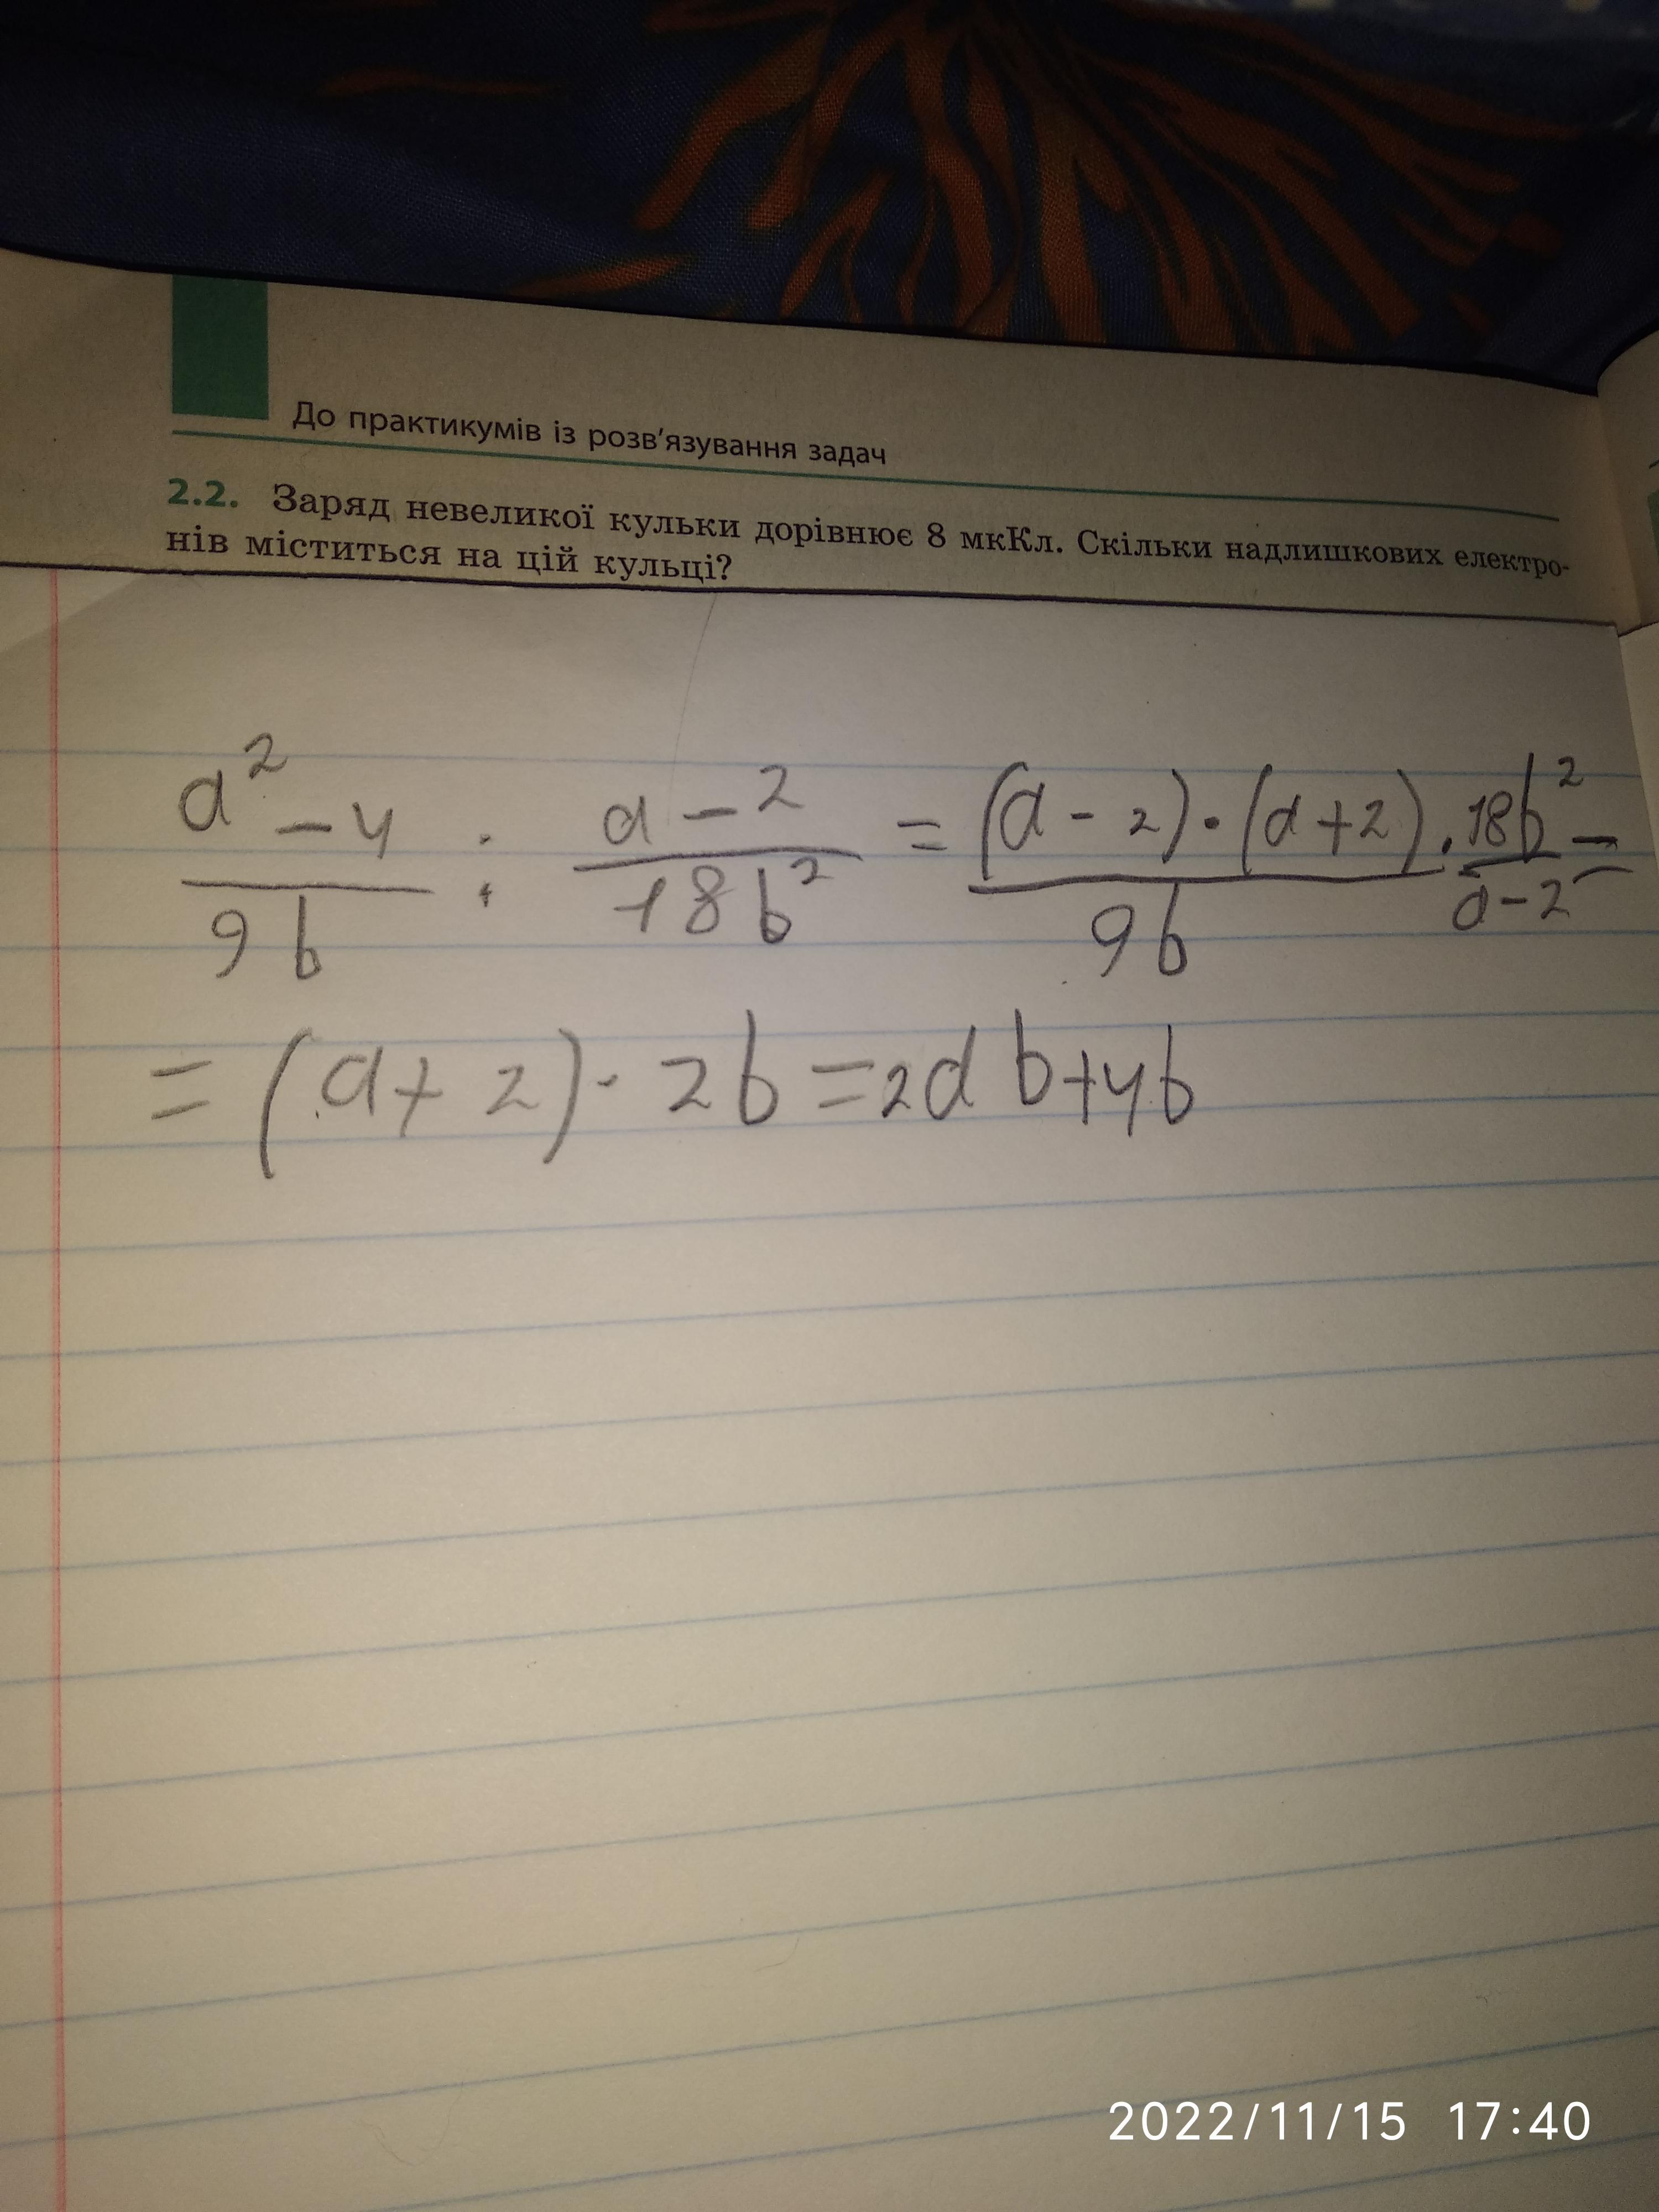 До практикумів із розв'язування задач
2.2. Заряд невеликої кульки дорівнює 8 мкКл. Скільки надлишкових електро-
нів міститься на цій кульці?
a² - 4 / 9b : a - 2 / 18b² = (a - 2) · (a + 2) / 9b · 18b² / a - 2 =
= (a + 2) · 2b = 2ab + 4b
2022/11/15 17:40